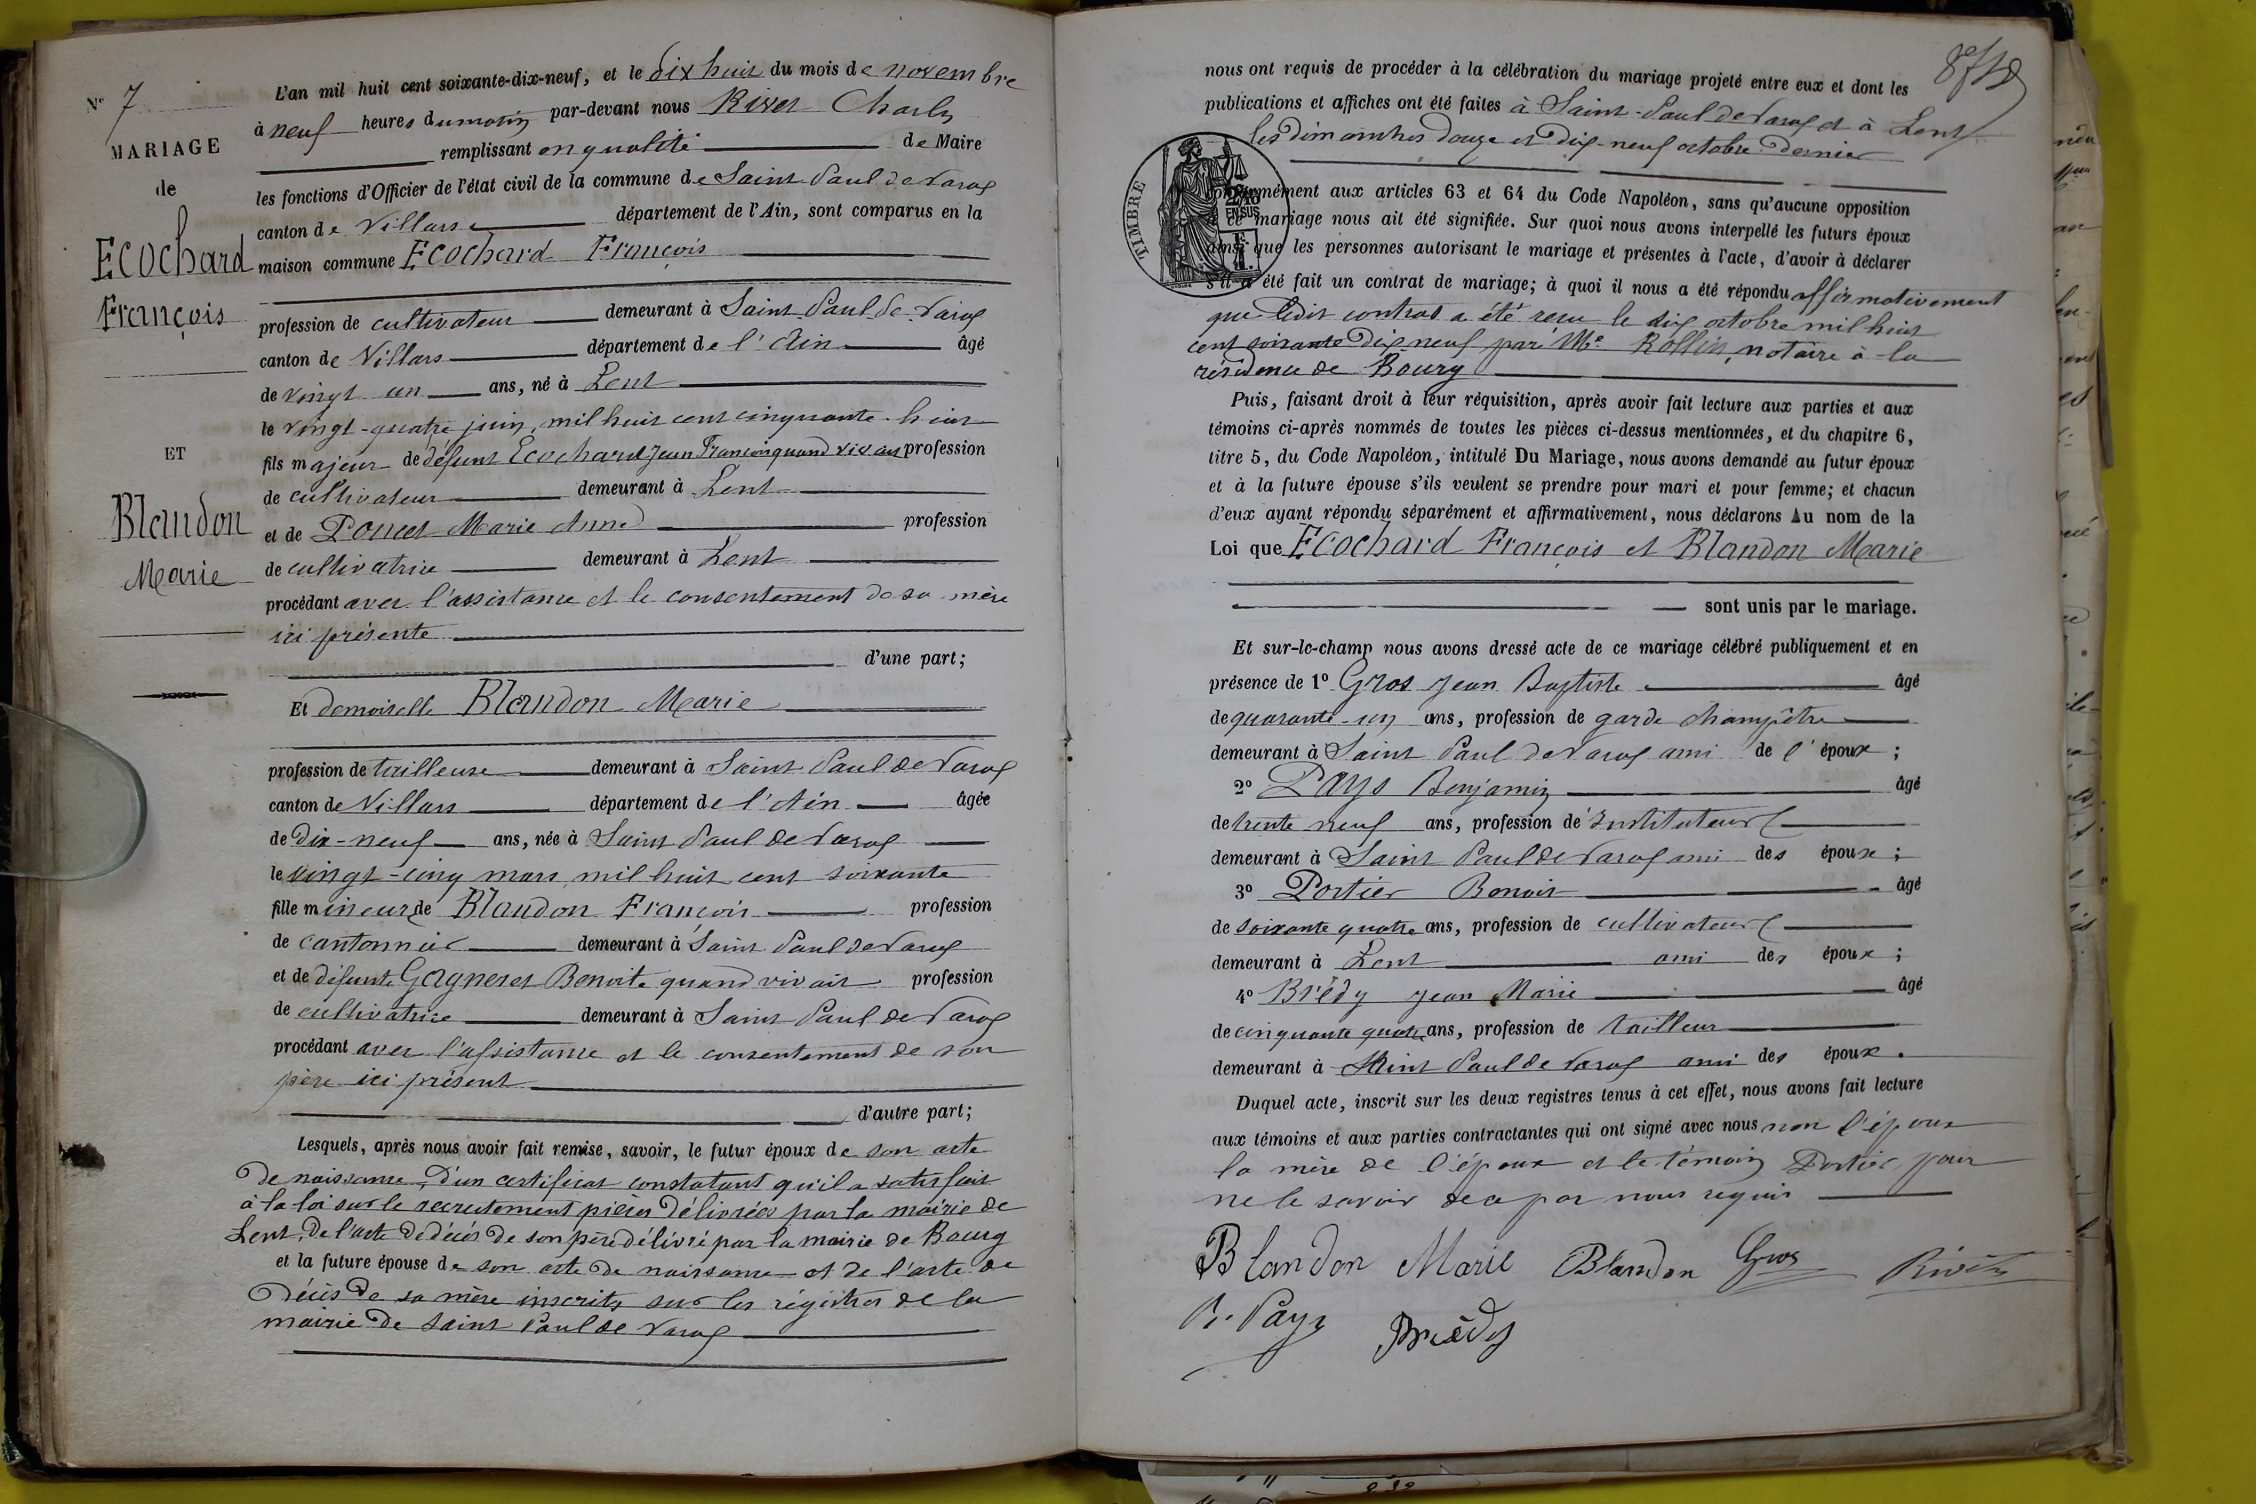 N° 7
MARIAGE
de
Ecochard
François
ET
Blandon
Marie
L'an mil huit cent soixante-dix-neuf, et le dix huit du mois de novembre
à neuf heures du matin par-devant nous Rivet Charles
remplissant en qualité de Maire
les fonctions d'Officier de l'état civil de la commune de Saint Paul de Varax
canton de Villars département de l'Ain, sont comparus en la
maison commune Ecochard François
profession de cultivateur demeurant à Saint Paul de Varax
canton de Villars département de l'Ain âgé
de vingt un ans, né à Lent
le vingt-quatre juin, mil huit cent cinquante-huit
fils majeur de défunt Ecochard Jean François quand vivait profession
de cultivateur demeurant à Lent
et de Poncet Marie Anne profession
de cultivatrice demeurant à Lent
procédant avec l'assistance et le consentement de sa mère
ici présente
d'une part;
Et demoiselle Blandon Marie
profession de tailleuse demeurant à Saint Paul de Varax
canton de Villars département de l'Ain âgée
de dix-neuf ans, née à Saint Paul de Varax
le vingt-cinq mars mil huit cent soixante
fille mineure de Blandon François profession
de cantonnier demeurant à Saint Paul de Varax
et de défunte Gagneret Benoite quand vivait profession
de cultivatrice demeurant à Saint Paul de Varax
procédant avec l'assistance et le consentement de son
père ici présent
d'autre part;
Lesquels, après nous avoir fait remise, savoir, le futur époux de son acte
de naissance, d'un certificat constatant qu'il a satisfait
à la loi sur le recrutement pièces délivrées par la mairie de
Lent, de l'acte de décès de son père délivré par la mairie de Bourg
et la future épouse de son acte de naissance et de l'acte de
décès de sa mère inscrits sur les régistres de la
mairie de Saint Paul de Varax
nous ont requis de procéder à la célébration du mariage projeté entre eux et dont les
publications et affiches ont été faites à Saint-Paul de Varax et à Lent
les dimanches douze et dix-neuf octobre dernier
TIMBRE
2/10
EN SUS
conformément aux articles 63 et 64 du Code Napoléon, sans qu'aucune opposition
à ce mariage nous ait été signifiée. Sur quoi nous avons interpellé les futurs époux
ainsi que les personnes autorisant le mariage et présentes à l'acte, d'avoir à déclarer
s'il a été fait un contrat de mariage; à quoi il nous a été répondu affirmativement
que ledit contrat a été reçu le dix octobre mil huit
cent soixante dix neuf par Me Rollin, notaire à la
résidence de Bourg
Puis, faisant droit à leur réquisition, après avoir fait lecture aux parties et aux
témoins ci-après nommés de toutes les pièces ci-dessus mentionnées, et du chapitre 6,
titre 5, du Code Napoléon, intitulé Du Mariage, nous avons demandé au futur époux
et à la future épouse s'ils veulent se prendre pour mari et pour femme; et chacun
d'eux ayant répondu séparément et affirmativement, nous déclarons Au nom de la
Loi que Ecochard François et Blandon Marie
sont unis par le mariage.
Et sur-le-champ nous avons dressé acte de ce mariage célébré publiquement et en
présence de 1° Gros Jean Baptiste âgé
de quarante-un ans, profession de garde champêtre
demeurant à Saint Paul de Varax ami de l'époux ;
2° Pays Benjamin âgé
de trente neuf ans, profession de Instituteur
demeurant à Saint Paul de Varax ami des époux ;
3° Portier Benoit âgé
de soixante quatre ans, profession de cultivateur
demeurant à Lent ami des époux ;
4° Brédy Jean Marie âgé
de cinquante quatre ans, profession de tailleur
demeurant à Saint Paul de Varax ami des époux.
Duquel acte, inscrit sur les deux registres tenus à cet effet, nous avons fait lecture
aux témoins et aux parties contractantes qui ont signé avec nous non l'époux
la mère de l'époux et le témoin Portier pour
ne le savoir de ce par nous requis
Blandon Marie Blandon Gros Rivet
B. Pays Brédy